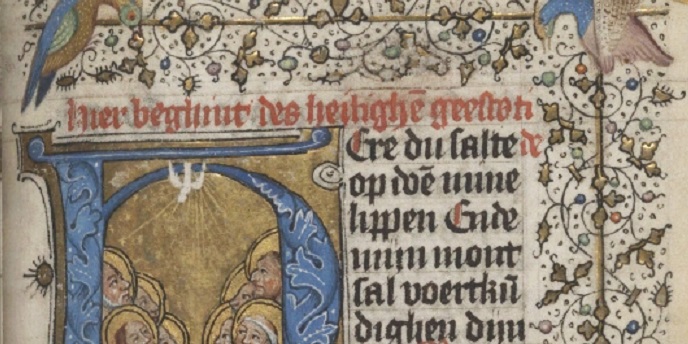 hier beghint des heilighē geestes ti
HEre du salte de
op doē mine
lippen Ende
mijn mont
sal voertkū
dighen dijn